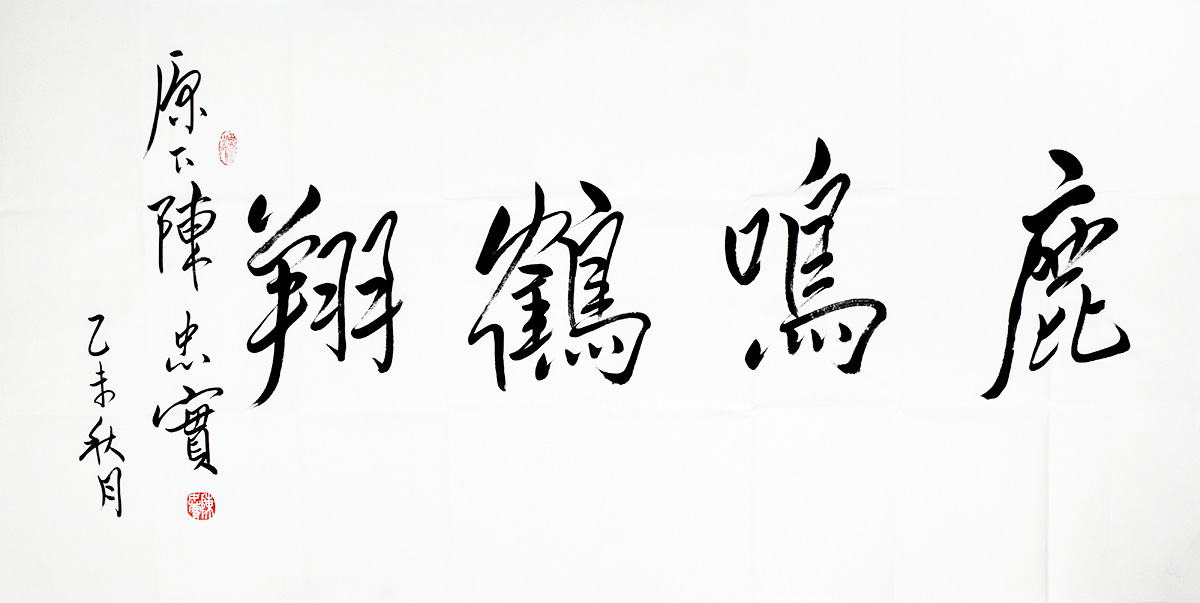 鹿鳴鶴翔
原下陳忠實
乙未秋月